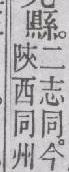 縣。二志同。今
陝西同州